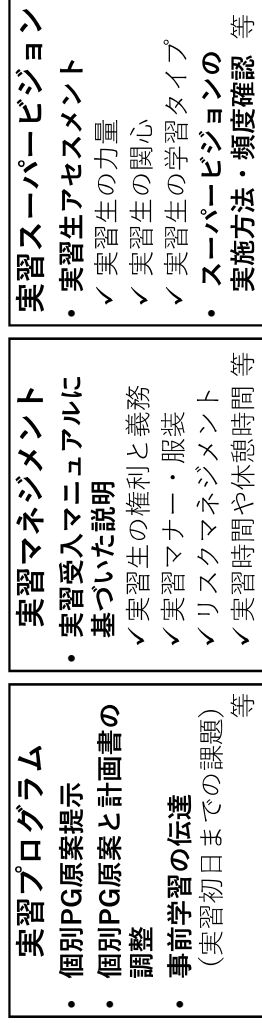 実習プログラム
• 個別PG原案提示
• 個別PG原案と計画書の
調整
• 事前学習の伝達
（実習初日までの課題）
等
実習マネジメント
• 実習受入マニュアルに
基づいた説明
✓実習生の権利と義務
✓実習マナー・服装
✓リスクマネジメント
✓実習時間や休憩時間 等
実習スーパービジョン
• 実習生アセスメント
✓ 実習生の力量
✓ 実習生の関心
✓ 実習生の学習タイプ
• スーパービジョンの
実施方法・頻度確認 等